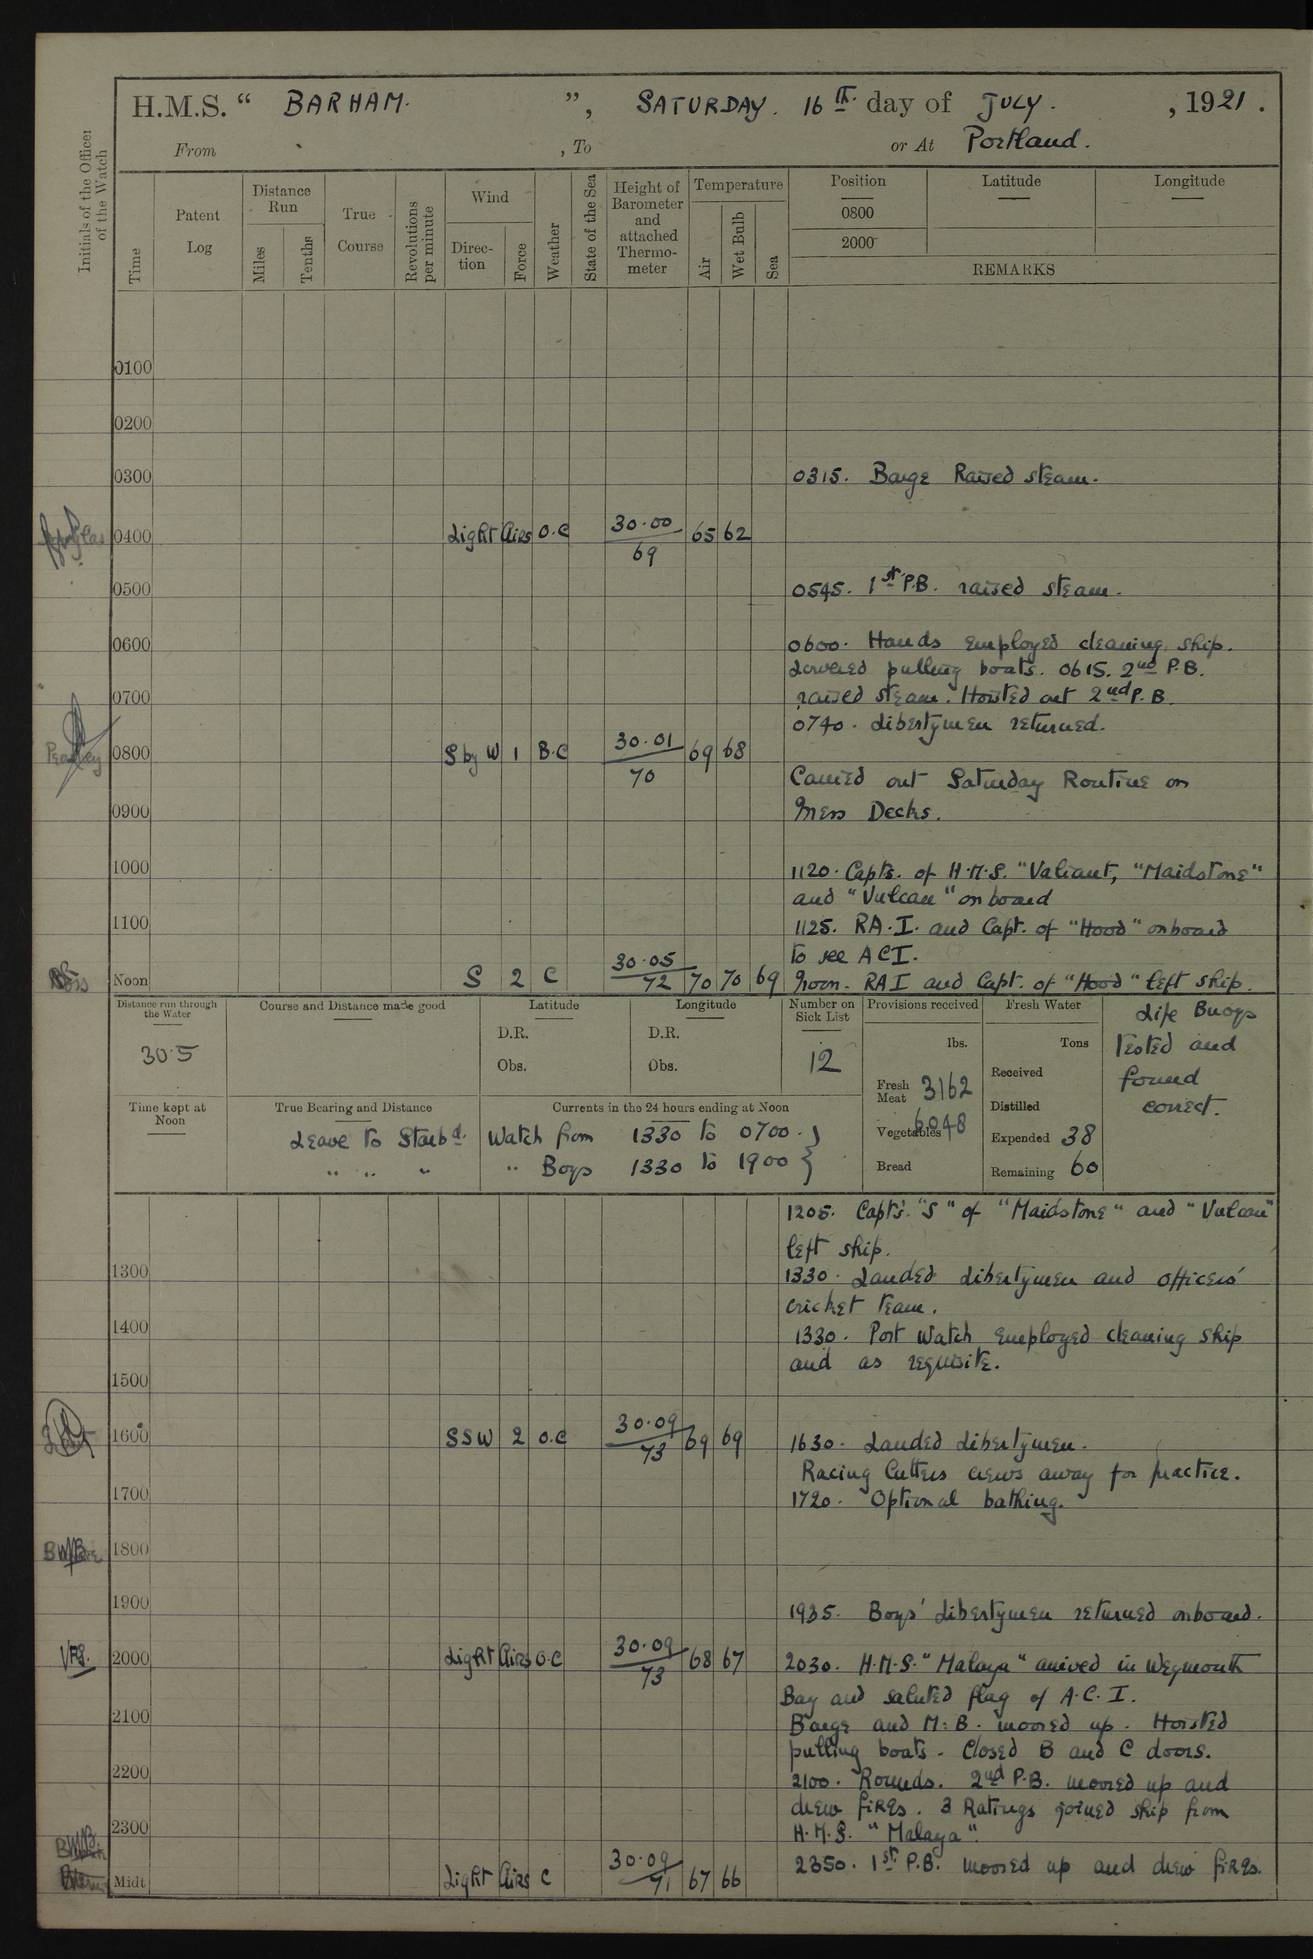 H.M.S. “ BARHAM. ”, SATURDAY. 16th. day of JULY. , 1921.
From , To or At Portland.
Initials of the Officer of the Watch
Time
Patent Log
Distance Run
Miles
Tenths
True Course
Revolutions per minute
Wind
Direc-tion
Force
Weather
State of the Sea
Height of Barometer and attached Thermo-meter
Temperature
Air
Wet Bulb
Sea
Position
0800
2000
Latitude
Longitude
REMARKS
0100
0200
0300 0315. Barge Raised steam.
0400 Light Airs O.C 30.00 65 62
69
0500 0545. 1st P.B. raised steam.
0600 0600. Hands employed cleaning ship.
Lowered pulling boats. 0615. 2nd P.B.
0700 raised steam. Hoisted out 2nd P.B.
0740. Libertymen returned.
0800 S by W 1 B.C 30.01 69 68
70
Carried out Saturday Routine on
0900 Mess Decks.
1000 1120. Capts. of H.M.S. "Valiant, "Maidstone"
and "Vulcan" onboard
1100 1125. RA.I. and Capt. of "Hood" onboard
to see ACI.
Noon S 2 C 30.05 70 70 69 Noon. RAI and Capt. of "Hood" left ship.
72
Distance run through the Water
30.5
Course and Distance made good
Latitude
D.R.
Obs.
Longitude
D.R.
Obs.
Number on Sick List
12
Provisions received
lbs.
Fresh Meat 3162
Vegetables 6048
Bread
Fresh Water
Tons
Received
Distilled
Expended 38
Remaining 60
Life Buoys
tested and
found
correct.
Time kept at Noon
True Bearing and Distance
Currents in the 24 hours ending at Noon
Leave to Starbd. Watch from 1330 to 0700. }
" " " " Boys 1330 to 1900 }
1205. Capts. "S" of "Maidstone" and "Vulcan"
left ship.
1300 1330. Landed Libertymen and officers'
cricket team.
1400 1330. Port Watch employed cleaning ship
and as requisite.
1500
1600 SSW 2 O.C 30.09 69 69 1630. Landed Libertymen.
73
Racing Cutters crews away for practice.
1700 1720. Optional bathing.
1800
1900 1935. Boys' Libertymen returned onboard.
2000 Light Airs O.C 30.09 68 67 2030. H.M.S. "Malaya" arrived in Weymouth
73
Bay and saluted flag of A.C.I.
2100 Barge and M.B. moored up. Hoisted
pulling boats. Closed B and C doors.
2200 2100. Rounds. 2nd P.B. moored up and
drew fires. 3 Ratings joined ship from
2300 H.M.S. "Malaya".
2350. 1st P.B. moored up and drew fires.
Midt Light Airs C 30.09 67 66
71